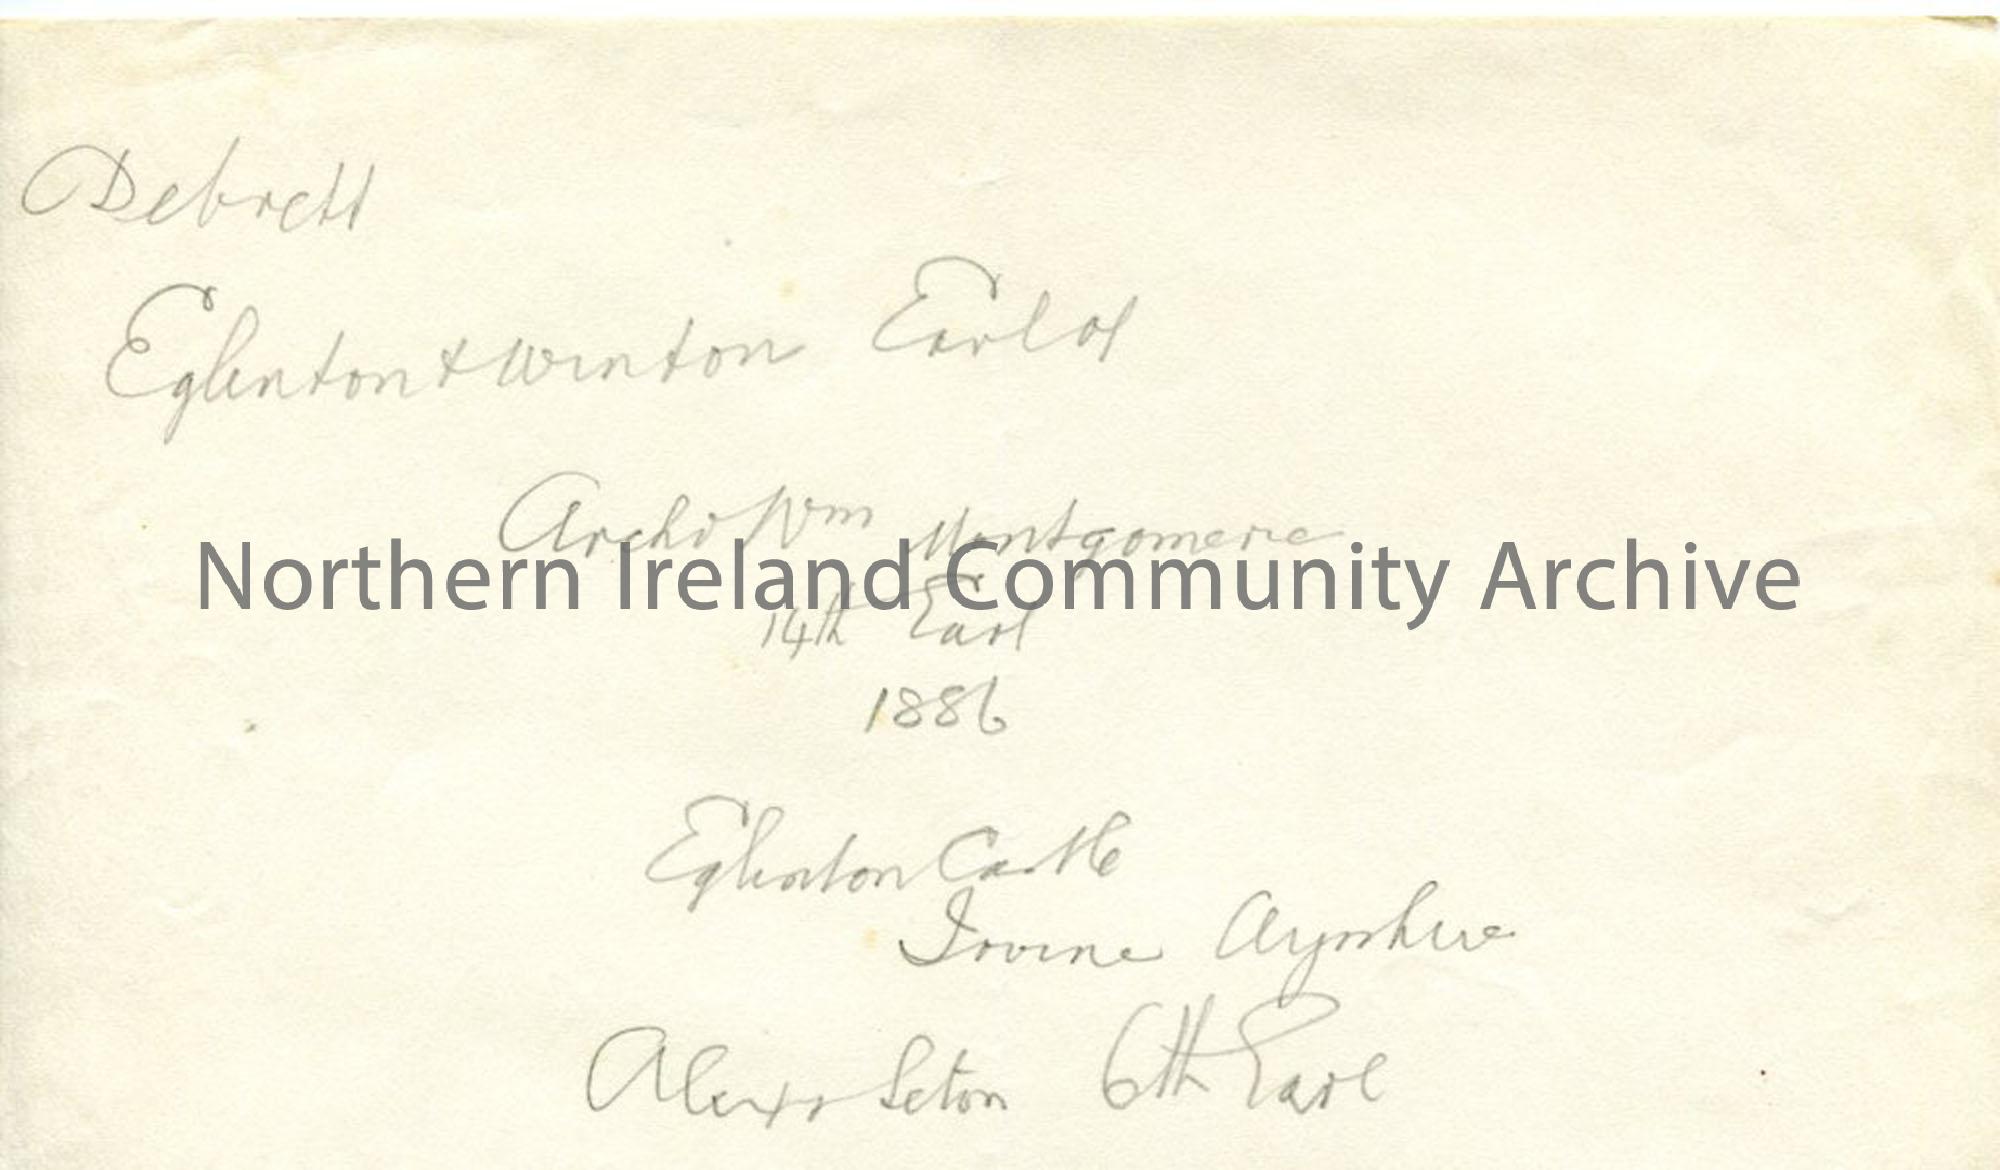 Debrett
Eglinton & Winton Earl of
Archd Wm Montgomerie
Northern Ireland Community Archive
14th Earl
1886
Eglinton Castle
Irvine Ayrshire
Alexr Seton 6th Earl